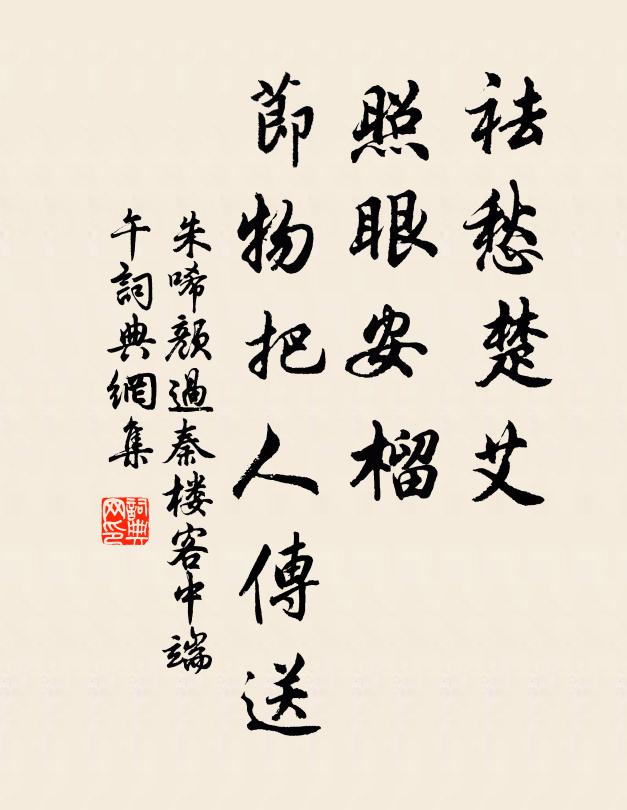 祛愁楚艾
照眼安榴
節物把人傳送
朱晞顏過秦楼客中端
午詞典網集
詞典
网印